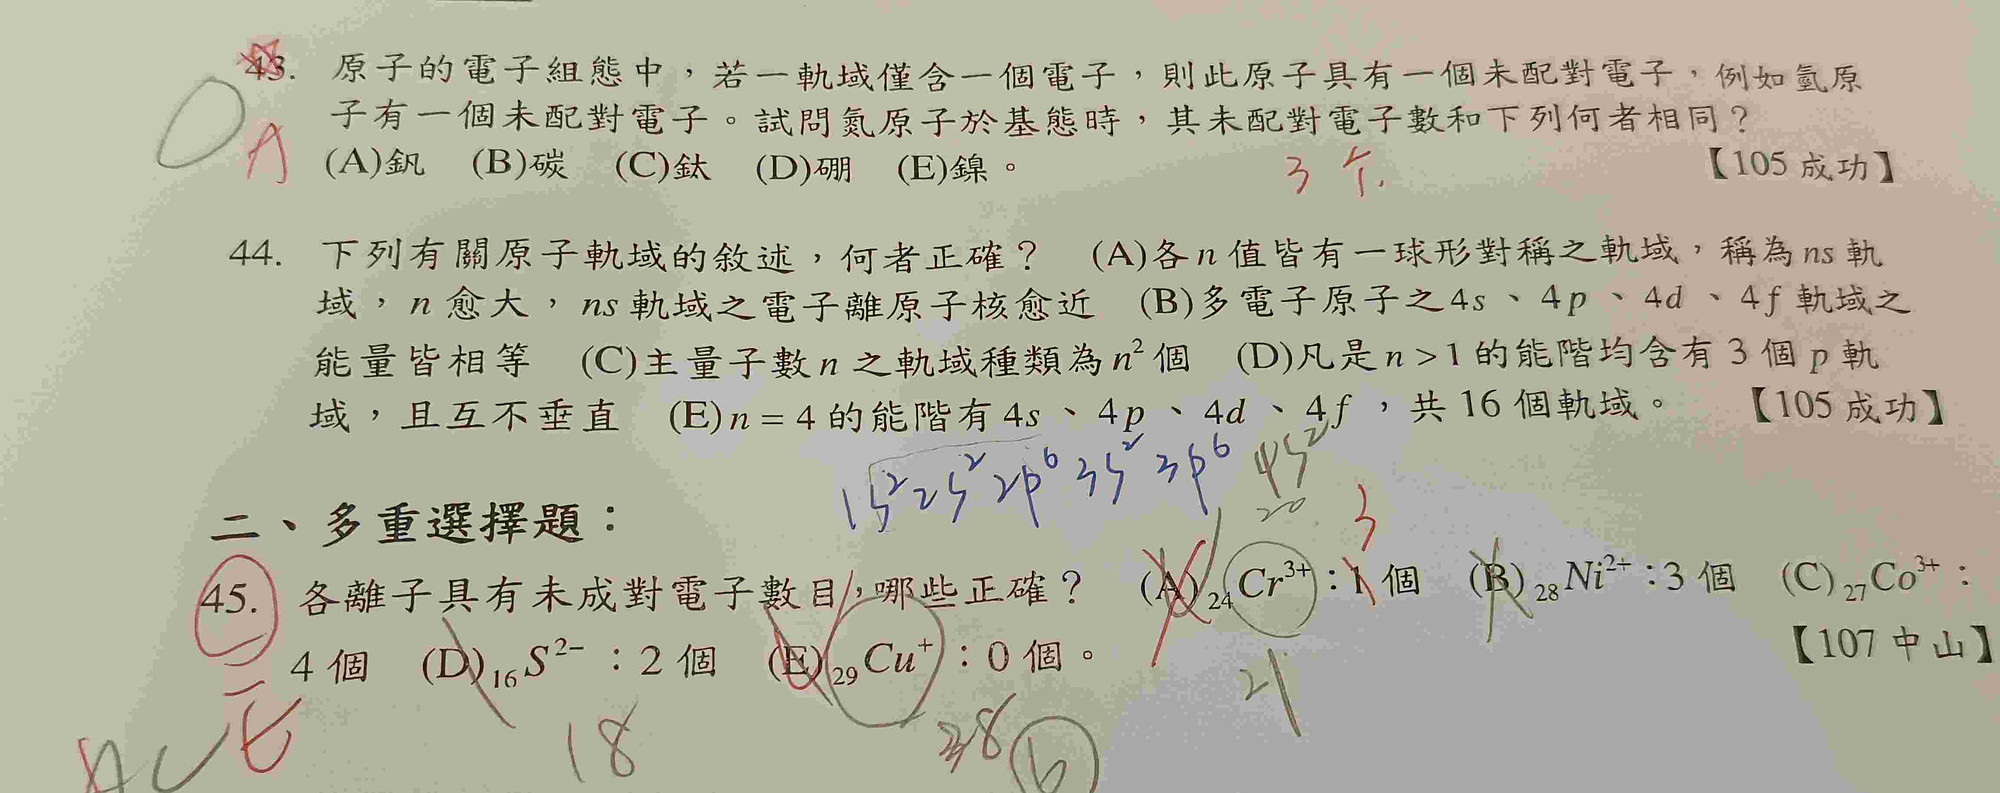 43. 原子的電子組態中，若一軌域僅含一個電子，則此原子具有一個未配對電子，例如氫原
子有一個未配對電子。試問氮原子於基態時，其未配對電子數和下列何者相同？
A (A)釩 (B)碳 (C)鈦 (D)硼 (E)鎳。 3个. 【105 成功】
44. 下列有關原子軌域的敘述，何者正確？ (A)各 n 值皆有一球形對稱之軌域，稱為 ns 軌
域，n 愈大，ns 軌域之電子離原子核愈近 (B)多電子原子之 4s、4p、4d、4f 軌域之
能量皆相等 (C)主量子數 n 之軌域種類為 n² 個 (D)凡是 n > 1 的能階均含有 3 個 p 軌
域，且互不垂直 (E) n = 4 的能階有 4s、4p、4d、4f，共 16 個軌域。 【105 成功】
1s² 2s² 2p⁶ 3s² 3p⁶ 4s²
20
二、多重選擇題：
3
45. 各離子具有未成對電子數目，哪些正確？ (A) ₂₄Cr³⁺：1 個 (B) ₂₈Ni²⁺：3 個 (C) ₂₇Co³⁺：
4 個 (D) ₁₆S²⁻：2 個 (E) ₂₉Cu⁺：0 個。 【107 中山】
21
18